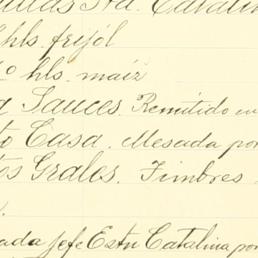 Sta. Catalin
hls. frijol
hls. maíz
Sauces. Remitido en
to Casa. Mesada por
tos Grales. Timbres
ada Jefe Estn Catalina por